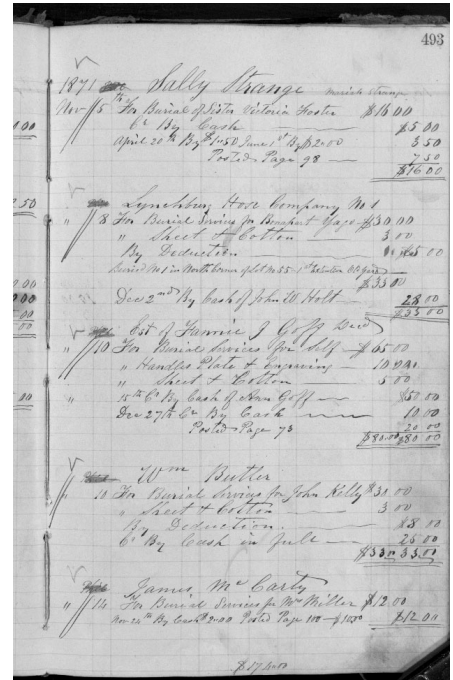 493
1871 Sally Strange Mariah Strange
Nov 5th For Burial of Sister Victoria Foster $16 00
Cr By Cash $5 00
April 20th By $1.50 June 1st By $2.00 3 50
Posted Page 98 7 50
$16 00
Lynchburg Hose Company No 1
" 8 For Burial Services for Gage $30.00
" Sheet & Cotton 3 00
By Deduction 5 00
$33 00
Dec 2nd By Cash of John W Holt 28 00
$33 00
Est of Fannie J Goff Decd
" 10 For Burial Services for Self $65 00
" Handles Plate & Engraving 10 00
" Sheet & Cotton 5 00
15th Cr By Cash of Ann Goff $50.00
Dec 27th Cr By Cash 10.00
Posted Page 73 20 00
$80.00 $80 00
Wm Butler
" 10 For Burial Services for John Kelly $30.00
" Sheet & Cotton 3 00
By Deduction $8 00
Cr By Cash in full 25 00
$33 00 33 00
James McCarty
" 14 For Burial Services for Mrs Miller $12 00
Nov 24th By Cash $2.00 Posted Page $12 00